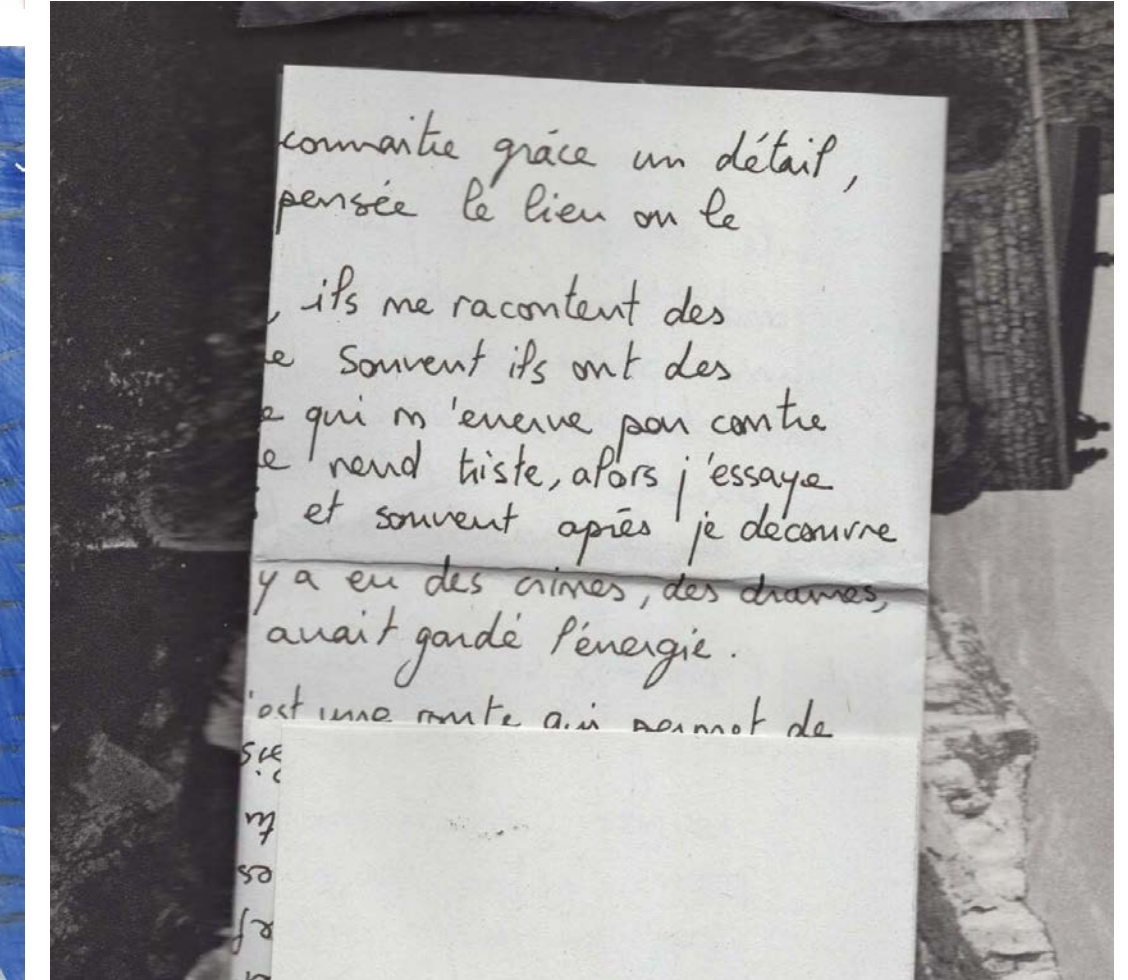 connaitre grâce un détail,
pensée le lieu ou le
, ils me racontent des
e souvent ils ont des
e qui m'enerve par contre
e rend triste, alors j'essaye
et souvent après je decouvre
y a eu des crimes, des drames,
avait gardé l'énergie.
'est une route qui permet de
tu
es